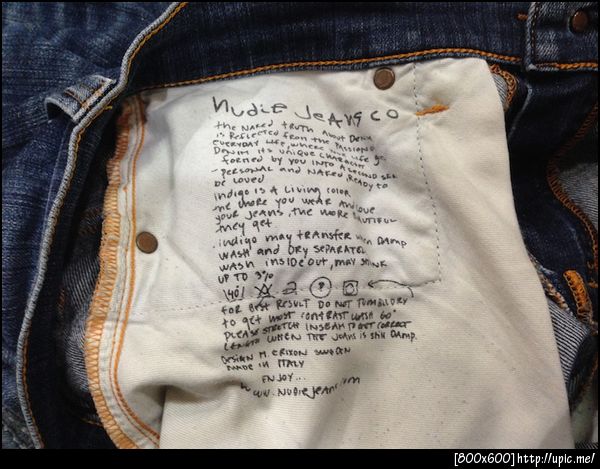 nudie jeans co
the naked truth about denim
is reflected from the passions
everyday life, where the life of
denim its unique character
formed by you into a second skin
personal and naked, ready to
be loved
indigo is a living color
the more you wear and love
your jeans, the more beautiful
they get
indigo may transfer when damp
wash and dry separate
wash inside out, may shrink
up to 3%
40
for best result do not tumbledry
to get most contrast wash 60°
please stretch inseam to get correct
length when the jeans is still damp.
design M. Erixon Sweden
made in Italy
enjoy...
www.nudiejeans.com
[800x600]http://upic.me/